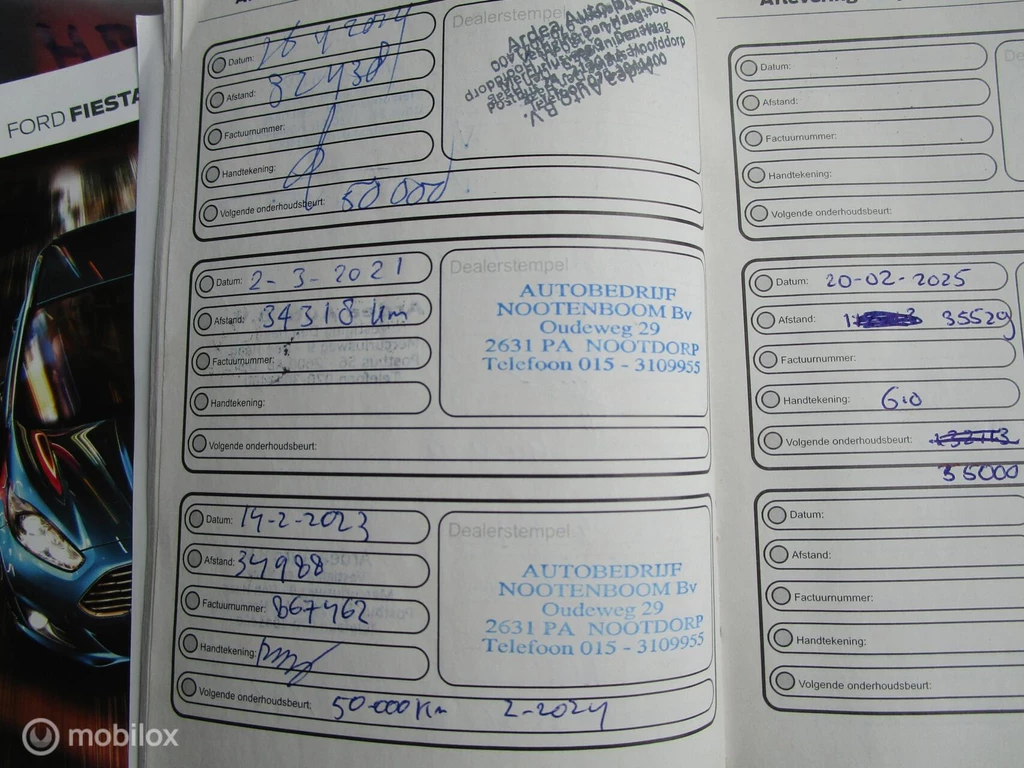 FORD FIESTA
Datum:
Afstand:
Factuurnummer:
Handtekening:
Volgende onderhoudsbeurt: 50000
Dealerstempel
Datum: 2-3-2021
Afstand: 34318 km
Factuurnummer:
Handtekening:
Volgende onderhoudsbeurt:
Dealerstempel
AUTOBEDRIJF
NOOTENBOOM Bv
Oudeweg 29
2631 PA NOOTDORP
Telefoon 015 - 3109955
Datum: 14-2-2023
Afstand: 34988
Factuurnummer: 867462
Handtekening:
Volgende onderhoudsbeurt: 50.000 Km 2-2024
Dealerstempel
AUTOBEDRIJF
NOOTENBOOM Bv
Oudeweg 29
2631 PA NOOTDORP
Telefoon 015 - 3109955
Datum:
Afstand:
Factuurnummer:
Handtekening:
Volgende onderhoudsbeurt:
Datum: 20-02-2025
Afstand: 35529
Factuurnummer:
Handtekening: Gio
Volgende onderhoudsbeurt:
55000
Datum:
Afstand:
Factuurnummer:
Handtekening:
Volgende onderhoudsbeurt:
mobilox